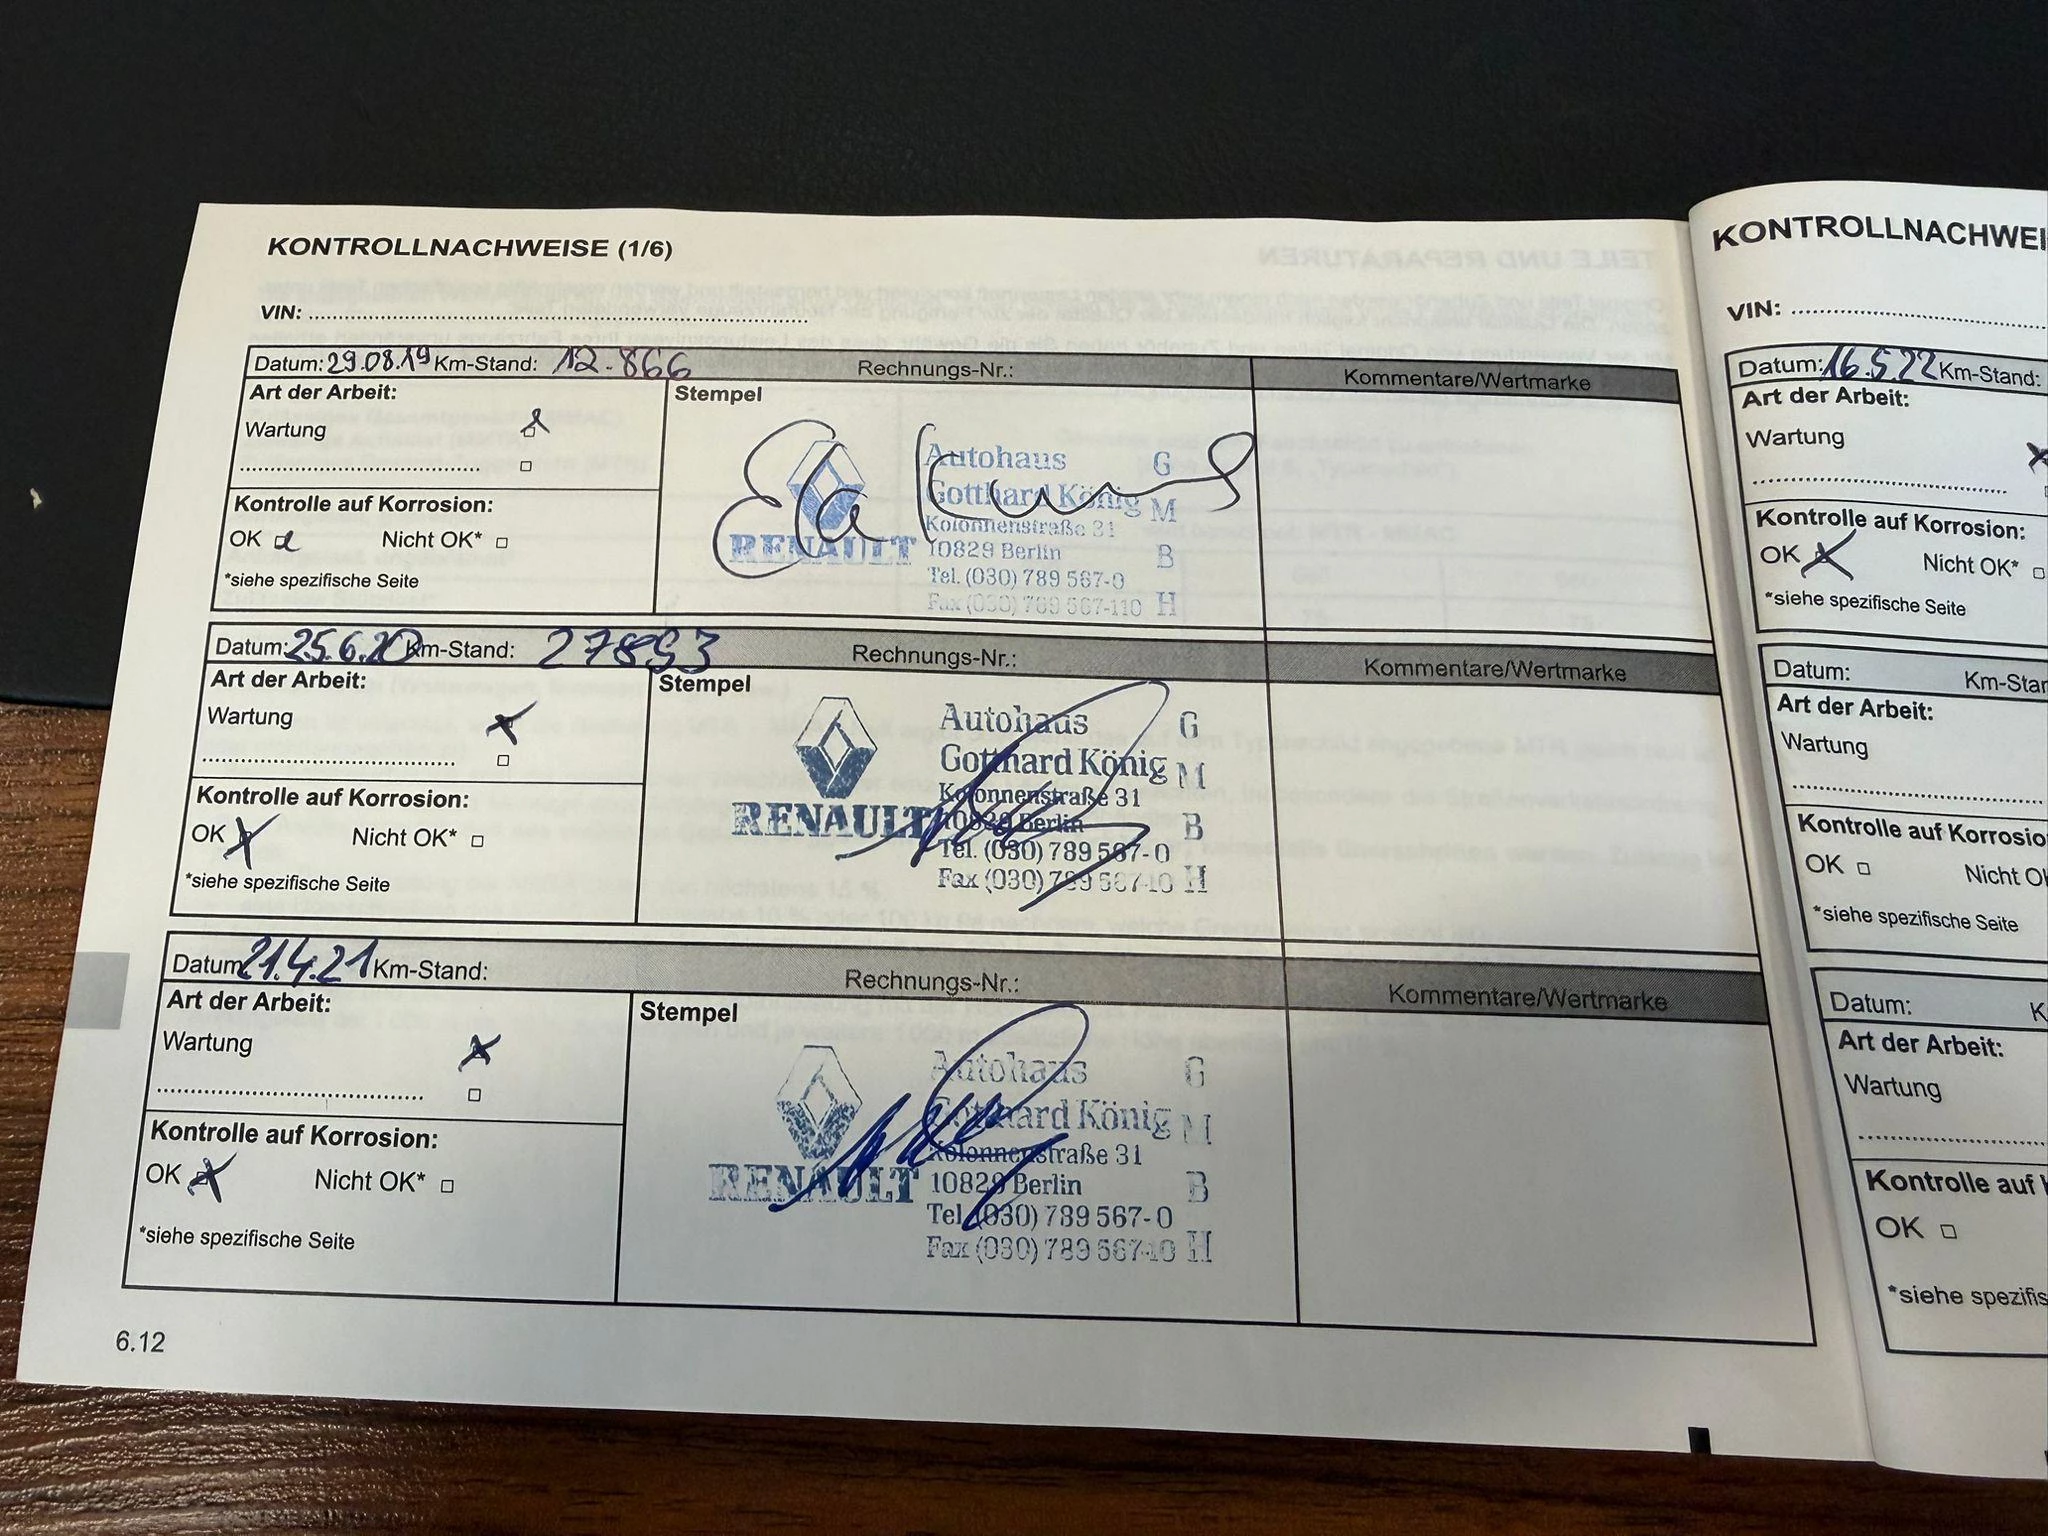 KONTROLLNACHWEISE (1/6)
VIN:
Datum: 29.08.19 Km-Stand: 12.866 Rechnungs-Nr.: Kommentare/Wertmarke
Art der Arbeit:
Wartung
Kontrolle auf Korrosion:
OK Nicht OK*
*siehe spezifische Seite
Stempel
RENAULT
Autohaus
Gotthard König
Kolonnenstraße 31
10829 Berlin
Tel. (030) 789 567-0
Fax (030) 789 567-110
G
M
B
H
Datum: 25.6.20 Km-Stand: 27893 Rechnungs-Nr.: Kommentare/Wertmarke
Art der Arbeit:
Wartung
Kontrolle auf Korrosion:
OK Nicht OK*
*siehe spezifische Seite
Stempel
RENAULT
Autohaus
Gotthard König
Kolonnenstraße 31
10829 Berlin
Tel. (030) 789 567-0
Fax (030) 789 567-10
G
M
B
H
Datum 21.4.21 Km-Stand: Rechnungs-Nr.: Kommentare/Wertmarke
Art der Arbeit:
Wartung
Kontrolle auf Korrosion:
OK Nicht OK*
*siehe spezifische Seite
Stempel
RENAULT
Autohaus
Gotthard König
Kolonnenstraße 31
10829 Berlin
Tel. (030) 789 567-0
Fax (030) 789 567-10
G
M
B
H
6.12
KONTROLLNACHWEI
VIN:
Datum: 16.5.22 Km-Stand:
Art der Arbeit:
Wartung
Kontrolle auf Korrosion:
OK Nicht OK*
*siehe spezifische Seite
Datum: Km-Stan
Art der Arbeit:
Wartung
Kontrolle auf Korrosio
OK Nicht OK
*siehe spezifische Seite
Datum: K
Art der Arbeit:
Wartung
Kontrolle auf K
OK
*siehe spezifis